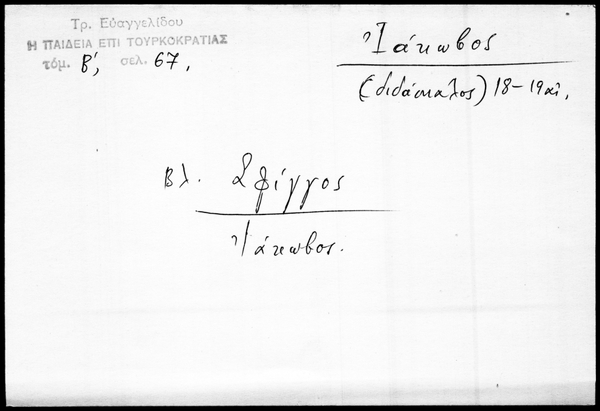 Τρ. Εὐαγγελίδου
Η ΠΑΙΔΕΙΑ ΕΠΙ ΤΟΥΡΚΟΚΡΑΤΙΑΣ
τόμ. Β', σελ. 67.
Ἰάκωβος
(διδάσκαλος) 18-19 αἰ.
Βλ. Σφίγγος
Ἰάκωβος.